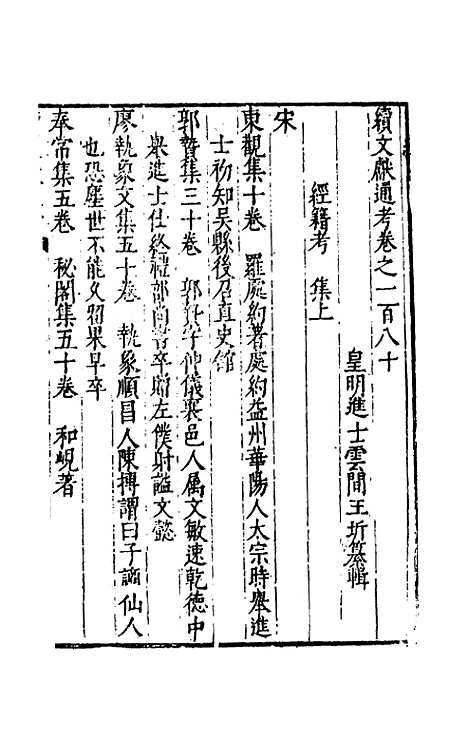 續文獻通考卷之一百八十
皇明進士雲間王圻纂輯
經籍考　集上
宋
東觀集十卷　羅處約著處約益州華陽人太宗時舉進
士初知吳縣後召直史館
郭贄集三十卷　郭贄字仲儀襄邑人属文敏速乾德中
舉進士仕終禮部尚書卒贈左僕射謚文懿
廖執象文集五十卷　執象順昌人陳摶謂曰子謫仙人
也恐塵世不能久留果早卒
奉常集五卷　秘閣集五十卷　和峴著